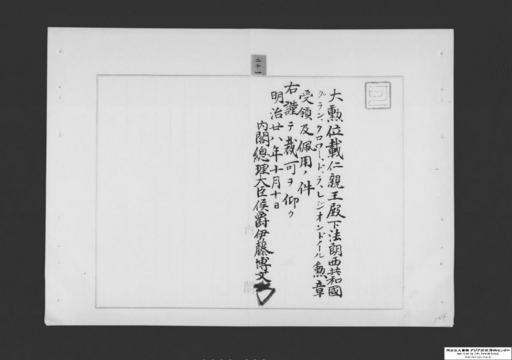 大勲位載仁親王殿下法朗西共和國
グラン、クロワー、ド、ラ、レジオンドノール勲章
受領及佩用ノ件
右謹テ裁可ヲ仰ク
明治廿八年十月十日
内閣總理大臣侯爵伊藤博文
二十一